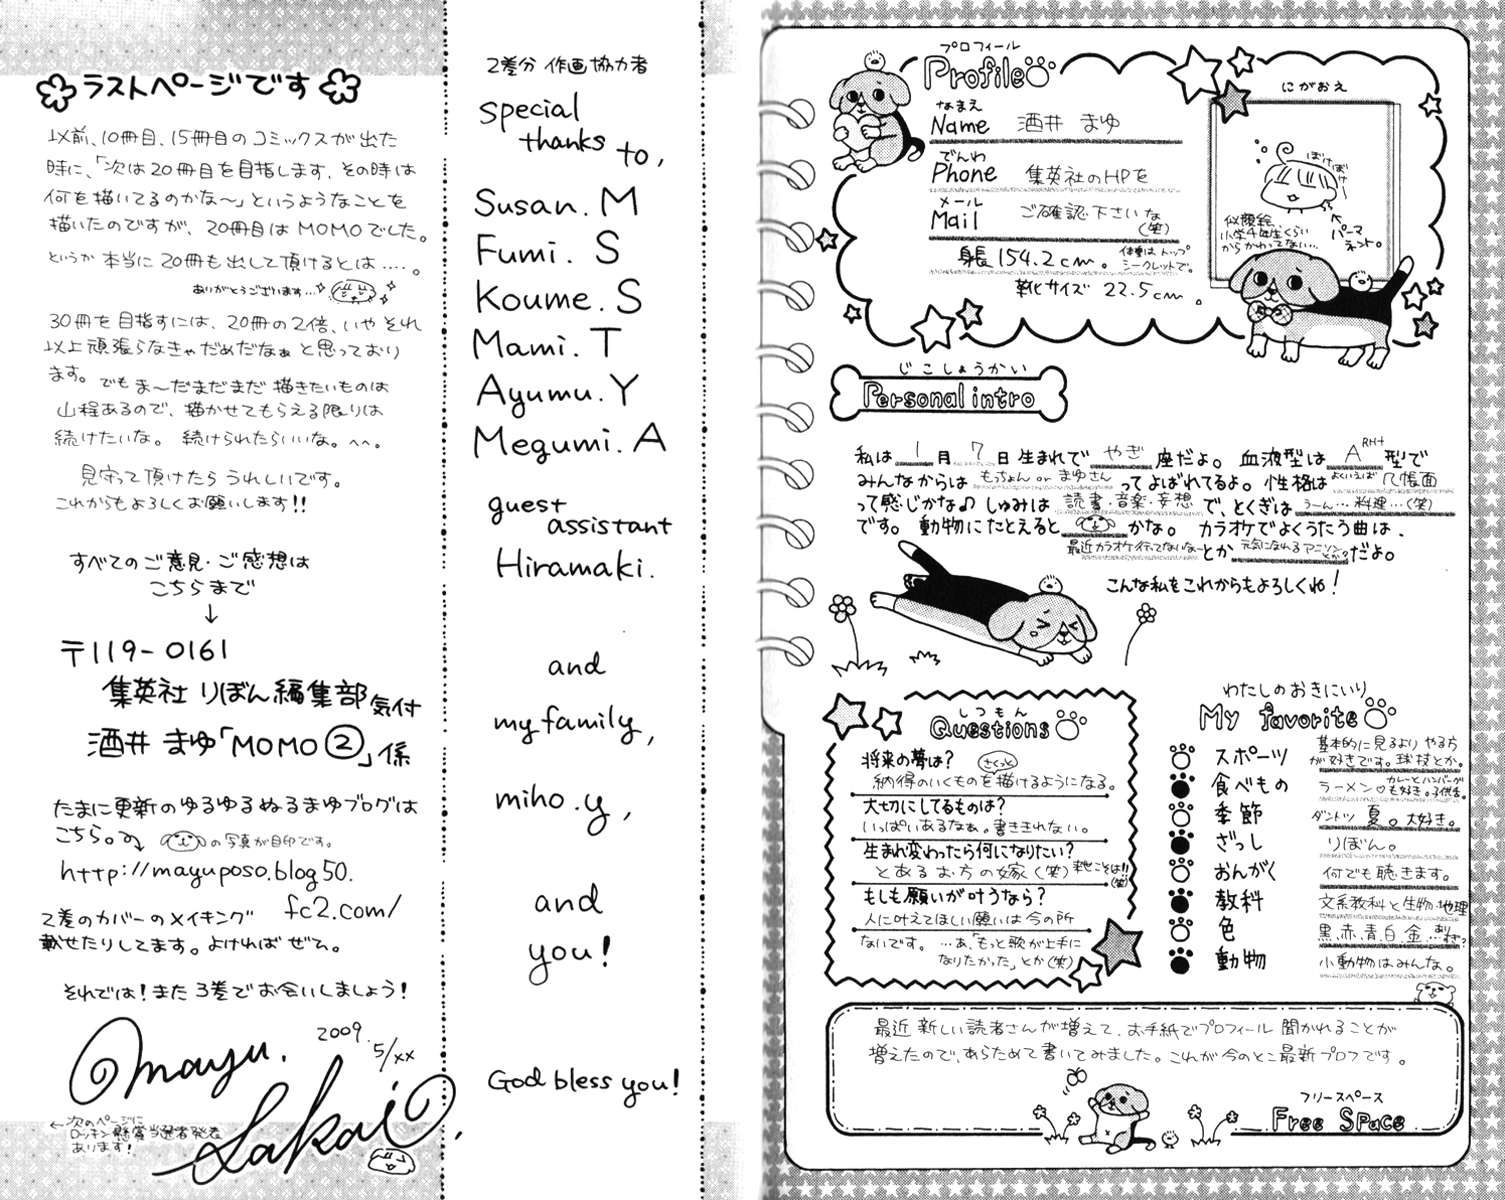 プロフィール
Profile
なまえ
Name 酒井 まゆ
でんわ
Phone 集英社のHPを
メール
Mail ご確認下さいな
(笑)
身長154.2cm。
体重はトップ
シークレットで。
靴サイズ 22.5cm。
にがおえ
ぽけぽけー
似顔絵
小学4年生くらい
からかわってない…
パーマ
ネント。
じこしょうかい
Personal intro
私は 1 月 7 日生まれで やぎ 座だよ。血液型は A RH+ 型で
みんなからは もっちょん or まゆさん ってよばれてるよ。性格は よくいえば 几帳面
って感じかな♪ しゅみは 読書・音楽・妄想 で、とくぎは うーん…料理…(笑)
です。動物にたとえると かな。カラオケでよくうたう曲は、
最近カラオケ行ってないなー とか 元気になれるアニソンとか? だよ。
こんな私をこれからもよろしくね!
しつもん
Questions
将来の夢は? さくっと
納得のいくものを描けるようになる。
大切にしてるものは?
いっぱいあるなぁ。書ききれない。
生まれ変わったら何になりたい?
とあるお方の嫁(笑) 来世こそは!!(笑)
もしも願いが叶うなら?
人に叶えてほしい願いは今の所
ないです。…あ、「もっと歌が上手に
なりたかった」とか(笑)
わたしのおきにいり
My favorite
スポーツ 基本的に見るよりやる方
が好きです。球技とか。
食べもの ラーメン♡ カレーとハンバーグ
も好き。子供舌。
季節 ダントツ 夏。大好き。
ざっし りぼん。
おんがく 何でも聴きます。
教科 文系教科と生物・地理
色 黒、赤、青、白、金…ありすぎ?
動物 小動物はみんな。
最近新しい読者さんが増えて、お手紙でプロフィール聞かれることが
増えたので、あらためて書いてみました。これが今のとこ最新プロフです。
フリースペース
Free Space
2巻分 作画協力者
special
thanks to,
Susan. M
Fumi. S
Koume. S
Mami. T
Ayumu. Y
Megumi. A
guest
assistant
Hiramaki.
and
my family,
miho.y,
and
you!
God bless you!
ラストページです
以前、10冊目、15冊目のコミックスが出た
時に、「次は20冊目を目指します、その時は
何を描いてるのかな～」というようなことを
描いたのですが、20冊目はMOMOでした。
というか本当に20冊も出して頂けるとは....。
ありがとうございます…
30冊を目指すには、20冊の2倍、いやそれ
以上頑張らなきゃだめだなぁと思っており
ます。でもま～だまだまだ描きたいものは
山程あるので、描かせてもらえる限りは
続けたいな。続けられたらいいな。^^。
見守って頂けたらうれしいです。
これからもよろしくお願いします!!
すべてのご意見・ご感想は
こちらまで
↓
〒119-0161
集英社 りぼん編集部気付
酒井 まゆ「MOMO②」係
たまに更新のゆるゆるぬるまゆブログは
こちら。 の写真が目印です。
http://mayuposo.blog50.
fc2.com/
2巻のカバーのメイキング
載せたりしてます。よければぜひ。
それでは!また3巻でお会いしましょう!
mayu. 2009.
5/xx
Sakai,
←次のページに
ロッキン懸賞当選者発表
あります!